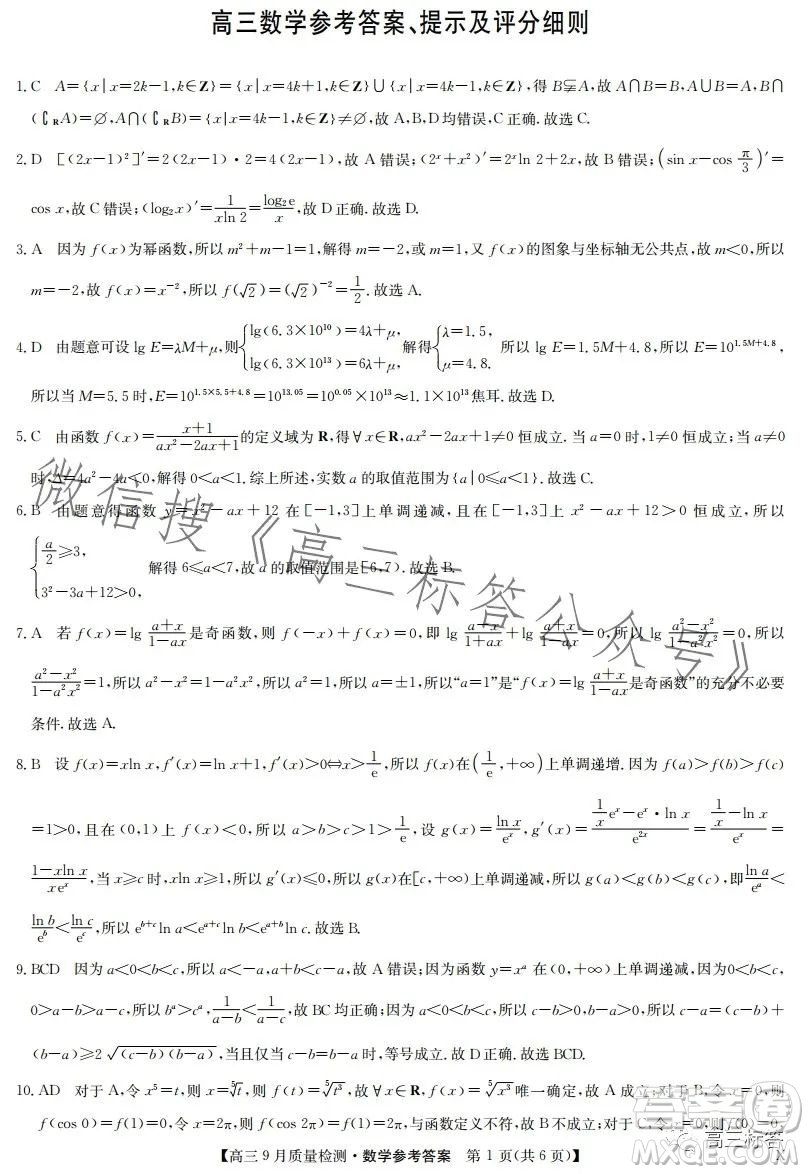 高三数学参考答案、提示及评分细则
1. C　A={x|x=2k−1,k∈Z}={x|x=4k+1,k∈Z}∪{x|x=4k−1,k∈Z},得 B⫋A,故 A∩B=B,A∪B=A,B∩
(∁RA)=∅,A∩(∁RB)={x|x=4k−1,k∈Z}≠∅,故 A,B,D 均错误,C 正确.故选 C.
2. D　[(2x−1)²]′=2(2x−1)·2=4(2x−1),故 A 错误;(2^x+x²)′=2^x ln 2+2x,故 B 错误;(sin x−cos π/3)′=
cos x,故 C 错误;(log₂x)′=1/(xln 2)=log₂e/x,故 D 正确.故选 D.
3. A　因为 f(x)为幂函数,所以 m²+m−1=1,解得 m=−2,或 m=1,又 f(x)的图象与坐标轴无公共点,故 m<0,所以
m=−2,故 f(x)=x⁻²,所以 f(√2)=(√2)⁻²=1/2.故选 A.
4. D　由题意可设 lg E=λM+μ,则{lg(6.3×10¹⁰)=4λ+μ, lg(6.3×10¹³)=6λ+μ,解得{λ=1.5, μ=4.8. 所以 lg E=1.5M+4.8,所以 E=10^(1.5M+4.8),
所以当 M=5.5 时,E=10^(1.5×5.5+4.8)=10^13.05=10^0.05×10¹³≈1.1×10¹³焦耳.故选 D.
5. C　由函数 f(x)=(x+1)/(ax²−2ax+1)的定义域为 R,得∀x∈R,ax²−2ax+1≠0 恒成立.当 a=0 时,1≠0 恒成立;当 a≠0
时,Δ=4a²−4a<0,解得 0<a<1.综上所述,实数 a 的取值范围为{a|0≤a<1}.故选 C.
6. B　由题意得函数 y=x²−ax+12 在[−1,3]上单调递减,且在[−1,3]上 x²−ax+12>0 恒成立,所以
{a/2≥3, 3²−3a+12>0, 解得 6≤a<7,故 a 的取值范围是[6,7).故选 B.
7. A　若 f(x)=lg (a+x)/(1−ax)是奇函数,则 f(−x)+f(x)=0,即 lg (a−x)/(1+ax)+lg (a+x)/(1−ax)=0,所以 lg (a²−x²)/(1−a²x²)=0,所以
(a²−x²)/(1−a²x²)=1,所以 a²−x²=1−a²x²,所以 a²=1,所以 a=±1,所以“a=1”是“f(x)=lg (a+x)/(1−ax)是奇函数”的充分不必要
条件.故选 A.
8. B　设 f(x)=xln x,f′(x)=ln x+1,f′(x)>0⇔x>1/e,所以 f(x)在(1/e,+∞)上单调递增.因为 f(a)>f(b)>f(c)
=1>0,且在(0,1)上 f(x)<0,所以 a>b>c>1>1/e,设 g(x)=ln x/e^x,g′(x)=((1/x)e^x−e^x·ln x)/e^(2x)=(1/x−ln x)/e^x=
(1−xln x)/(xe^x),当 x≥c 时,xln x≥1,所以 g′(x)≤0,所以 g(x)在[c,+∞)上单调递减,所以 g(a)<g(b)<g(c),即 ln a/e^a<
ln b/e^b<ln c/e^c,所以 e^(b+c)ln a<e^(a+c)ln b<e^(a+b)ln c.故选 B.
9. BCD　因为 a<0<b<c,所以 b<c<c−a,故 A 错误;因为函数 y=x^a 在(0,+∞)上单调递减,因为 0<b<c,
0>a−b>a−c,所以 b^a>c^a,1/(a−b)<1/(a−c),故 BC 均正确;因为 a<b<c,所以 c−b>0,b−a>0,所以 c−a=(c−b)+
(b−a)≥2√((c−b)(b−a)),当且仅当 c−b=b−a 时,等号成立.故 D 正确.故选 BCD.
10. AD　对于 A,令 x⁵=t,则 x=⁵√t,则 f(t)=⁵√t³,故∀x∈R,f(x)=⁵√x³唯一确定,故 A 成立;对于 B,令 x=0,则
f(cos 0)=f(1)=0,令 x=2π,则 f(cos 2π)=f(1)=2π,与函数定义不符,故 B 不成立;对于 C,令 x=0,则 f(0)=0,
【高三9月质量检测·数学参考答案　第1页(共6页)】
X
微信搜《高三标答公众号》
高三标答